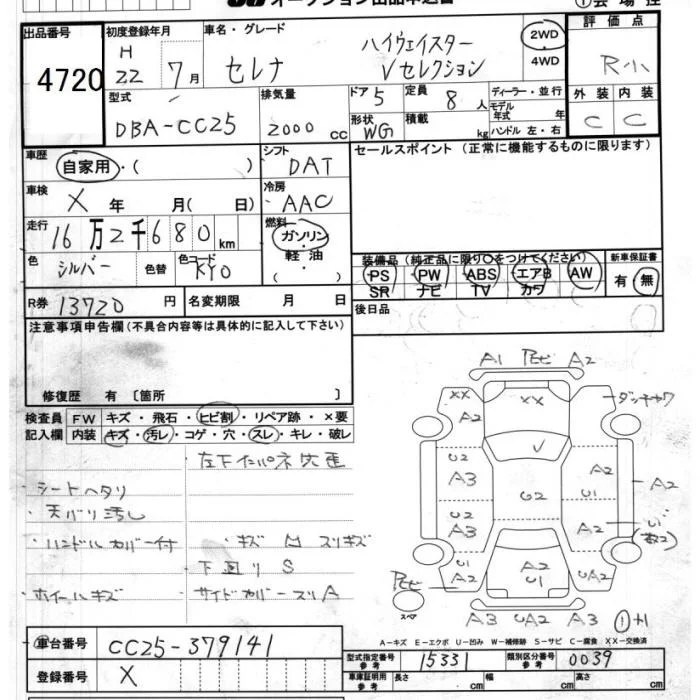 オークション出品申込書 ①会場控
出品番号 初度登録年月 車名・グレード 評価点
4720 H 22 7月 セレナ ハイウェイスター Vセレクション 2WD 4WD R小
型式 排気量 ドア 5 定員 8人 ディーラー・並行 外装 内装
DBA-CC25 2000cc 形状 WG 積載 kg モデル年式 年 ハンドル 左・右 C C
車歴 自家用・( ) シフト DAT セールスポイント (正常に機能するものに限ります)
車検 X 年 月( 日) 冷房 AAC
走行 16万2千680km 燃料 ガソリン・軽油・( )
色 シルバー 色替 色コード KY0
装備品 (純正品に限り○をつけてください) 新車保証書
PS PW ABS エアB AW 有 無
SR ナビ TV カワ
R券 13720円 名変期限 月 日 後日品
注意事項申告欄(不具合内容等は具体的に記入して下さい)
修復歴 有〔箇所 〕
検査員記入欄 FW キズ・飛石・ヒビ割・リペア跡・×要
内装 キズ・汚レ・コゲ・穴・スレ・キレ・破レ
・シートヘタリ
・天バリ汚し
・ハンドルカバー付 ・キズ凹スリキズ
・下回りS
・ホイールキズ ・サイドカバースリA
A1 A2
XX A2 XX
U2 A3 U2 A3 U2 A2 U1 A2 A2
U2 A2 A2 U1 UA2
スペア
A3 UA2 A3
A-キズ E-エクボ U-凹み W-補修跡 S-サビ C-腐食 XX-交換済
車台番号 CC25-379141
型式指定番号 参考 15331 類別区分番号 参考 0039
登録番号 X
車庫証明用 参考 長さ cm 幅 cm 高さ cm